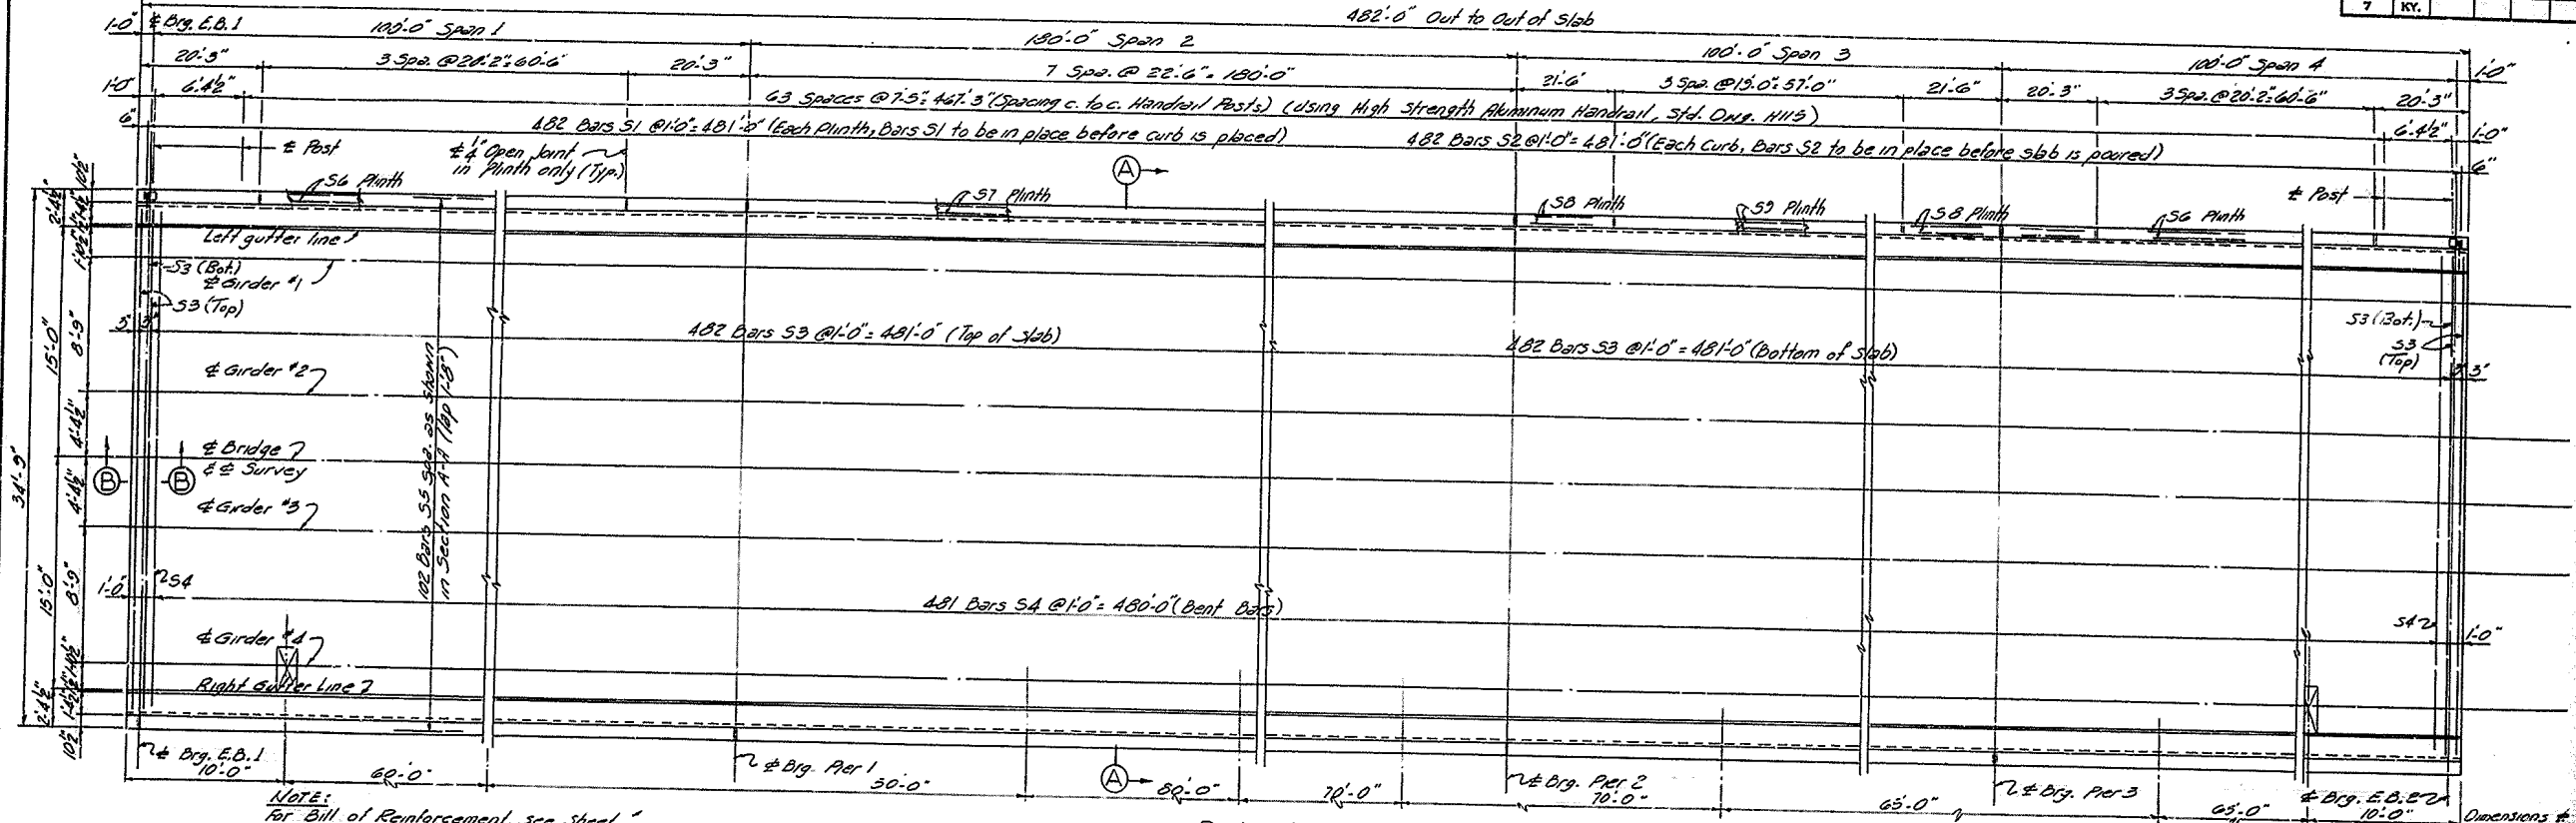 7 KY.
482'-0" Out to Out of Slab
1'-0" ⅊ Brg. E.B.1 100'-0" Span 1 180'-0" Span 2 100'-0" Span 3 100'-0" Span 4 1'-0"
20'-3" 3 Spa. @ 20'-2"= 60'-6" 20'-3" 7 Spa. @ 22'-6" = 180'-0" 21'-6" 3 Spa. @ 19'-0"= 57'-0" 21'-6" 20'-3" 3 Spa. @ 20'-2"= 60'-6" 20'-3"
1'-0" 6'-4½" 63 Spaces @ 7'-5"= 467'-3" (Spacing c. to c. Handrail Posts) (Using High Strength Aluminum Handrail, Std. Dwg. HH5) 6'-4½" 1'-0"
6" 482 Bars S1 @ 1'-0"= 481'-0" (Each Plinth, Bars S1 to be in place before curb is placed) 482 Bars S2 @ 1'-0"= 481'-0" (Each Curb, Bars S2 to be in place before slab is poured) 6"
⅊ Post
⅊ ¼" Open Joint
in Plinth only (Typ.)
A
S6 Plinth S7 Plinth S8 Plinth S9 Plinth S8 Plinth S6 Plinth ⅊ Post
10½"
2'-4½" 1'-4½"
1'-10½"
Left gutter line
S3 (Bot.)
⅊ Girder #1
S3 (Top)
3" 3"
482 Bars S3 @ 1'-0"= 481'-0" (Top of Slab)
482 Bars S3 @ 1'-0" = 481'-0" (Bottom of Slab)
S3 (Bot.)
S3
(Top)
3"
15'-0" 8'-9"
⅊ Girder #2
102 Bars S5 Spa. as Shown
in Section A-A (Lap 1'-8")
4'-4½"
⅊ Bridge
& ⅊ Survey
34'-9"
B B
4'-4½"
⅊ Girder #3
15'-0" 8'-9"
1'-0" S4
481 Bars S4 @ 1'-0"= 480'-0" (Bent Bars)
S4 1'-0"
⅊ Girder #4
1'-10½"
Right Gutter Line
2'-4½" 1'-4½"
10½"
⅊ Brg. E.B.1 ⅊ Brg. Pier 1 A ⅊ Brg. Pier 2 ⅊ Brg. Pier 3 ⅊ Brg. E.B.2
10'-0" 60'-0" 50'-0" 80'-0" 70'-0" 70'-0" 65'-0" 65'-0" 10'-0"
NOTE:
For Bill of Reinforcement see Sheet
Dimensions